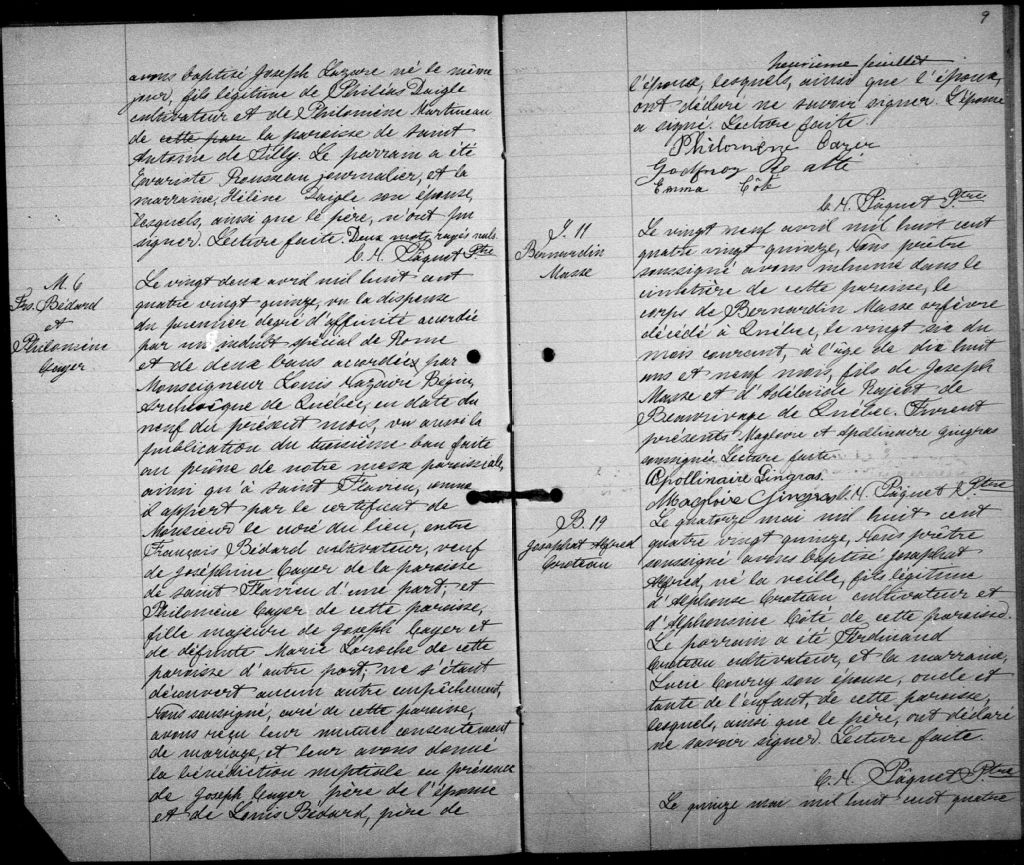 avons baptisé Joseph Lazare né le même
jour, fils légitime de Philéas Daigle
cultivateur et de Philomène Martineau
de cette par la paroisse de saint
Antoine de Tilly. Le parrain a été
Evariste Rousseau journalier, et la
marraine, Hélène Daigle son épouse,
lesquels, ainsi que le père, n'ont pu
signer. Lecture faite. Deux mots rayés nuls.
C. H. Paquet Ptre
M. 6
Frs. Bédard
et
Philomène
Cayer
Le vingt deux avril mil huit cent
quatre vingt quinze, vu la dispense
du premier degré d'affinité accordée
par un indult spécial de Rome
et de deux bans accordées par
Monseigneur Louis Nazaire Bégin,
Archevêque de Québec, en date du
neuf du présent mois, vu aussi la
publication du troisième ban faite
au prône de notre messe paroissiale,
ainsi qu'à saint Flavien, comme
il appert par le certificat de
Monsieur le curé du lieu, entre
François Bédard cultivateur, veuf
de Joséphine Cayer de la paroisse
de saint Flavien d'une part; et
Philomène Cayer de cette paroisse,
fille majeure de Joseph Cayer et
de défunte Marie Laroche de cette
paroisse d'autre part; ne s'étant
découvert aucun autre empêchement,
Nous soussigné, curé de cette paroisse,
avons reçu leur mutuel consentement
de mariage, et leur avons donné
la bénédiction nuptiale en présence
de Joseph Cayer père de l'épouse
et de Louis Bédard, père de
9
neuvième feuillet
l'époux, lesquels, ainsi que l'époux,
ont déclaré ne savoir signer. L'épouse
a signé. Lecture faite.
Philomène Cayer
Godfroy
Emma Côté
C. H. Paquet Ptre
S. 11
Bernardin
Masse
Le vingt neuf avril mil huit cent
quatre vingt quinze, nous prêtre
soussigné avons inhumé dans le
cimetière de cette paroisse, le
corps de Bernardin Masse orfèvre
décédé à Québec, le vingt six du
mois courant, à l'âge de dix huit
ans et neuf mois, fils de Joseph
Masse et d'Adélaïde Rajot de
Beaurivage de Québec. Furent
présents Magloire et Apollinaire Gingras
soussignés. Lecture faite.
Apollinaire Gingras.
Magloire Gingras C. H. Paquet Ptre
B. 19
Josaphat Alfred
Croteau
Le quatorze mai mil huit cent
quatre vingt quinze, nous prêtre
soussigné avons baptisé Josaphat
Alfred, né la veille, fils légitime
d'Alphonse Croteau cultivateur et
d'Alphonsine Côté de cette paroisse.
Le parrain a été Ferdinand
Croteau cultivateur, et la marraine,
Lucie son épouse, oncle et
tante de l'enfant, de cette paroisse,
lesquels, ainsi que le père, ont déclaré
ne savoir signer. Lecture faite.
C. H. Paquet Ptre
Le quinze mai mil huit cent quatre